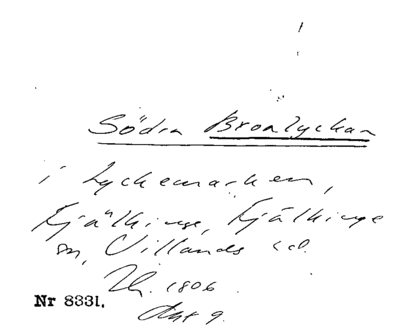 Södra Bronlyckan
i Lyckemarken,
Fjälkinge, Fjälkinge
sn, Villands hd.
1806
Akt 9.
Nr 8331.